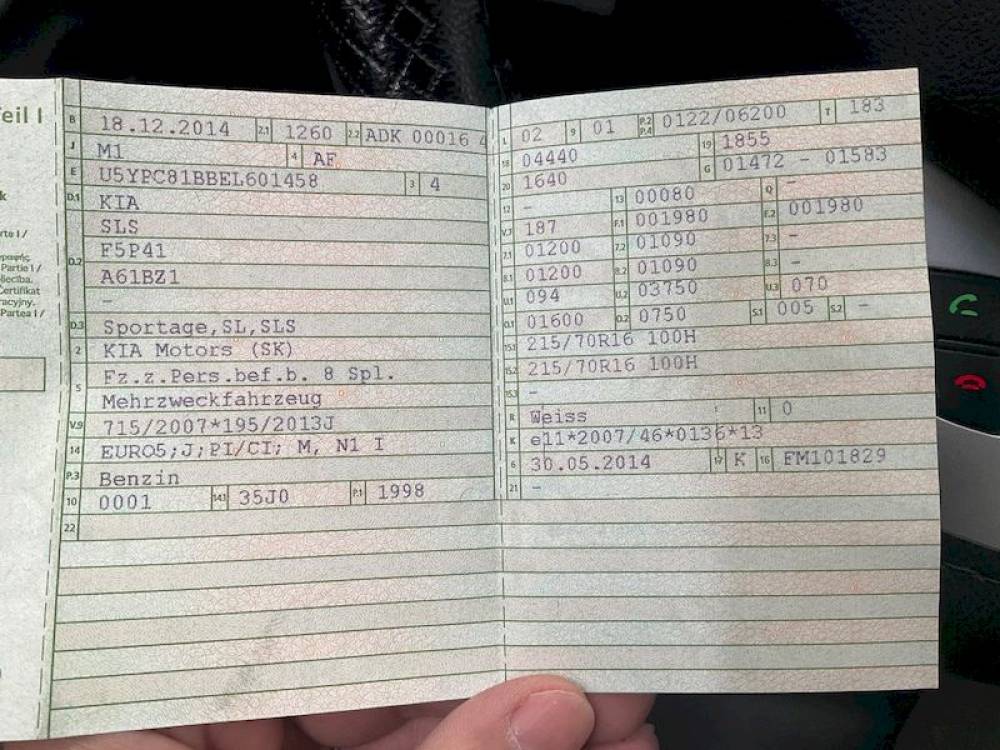 Teil I
B 18.12.2014 2.1 1260 2.2 ADK 00016 4
J M1 4 AF
E U5YPC81BBEL601458 3 4
D.1 KIA
SLS
D.2 F5P41
A61BZ1
–
D.3 Sportage,SL,SLS
2 KIA Motors (SK)
5 Fz.z.Pers.bef.b. 8 Spl.
Mehrzweckfahrzeug
V.9 715/2007*195/2013J
14 EURO5;J;PI/CI; M, N1 I
P.3 Benzin
10 0001 14.1 35J0 P.1 1998
22
L 02 9 01 P.2 P.4 0122/06200 T 183
18 04440 19 1855
20 1640 G 01472 - 01583
12 – 13 00080 Q –
V.7 187 F.1 001980 F.2 001980
7.1 01200 7.2 01090 7.3 –
8.1 01200 8.2 01090 8.3 –
U.1 094 U.2 03750 U.3 070
O.1 01600 O.2 0750 S.1 005 S.2 –
15.1 215/70R16 100H
15.2 215/70R16 100H
15.3 –
R Weiss 11 0
K e11*2007/46*0136*13
6 30.05.2014 17 K 16 FM101829
21 –